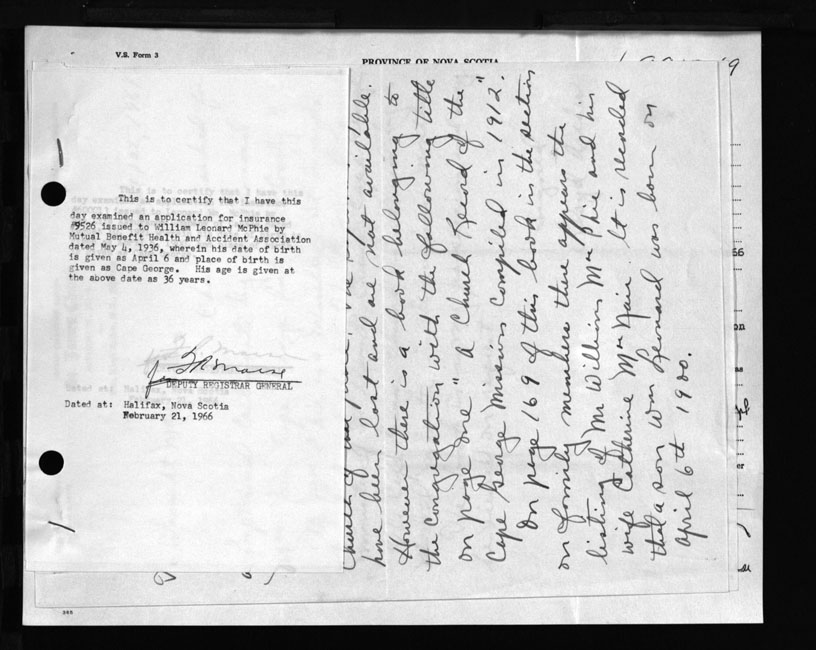 V.S. Form 3
PROVINCE OF NOVA SCOTIA
This is to certify that I have this
day examined an application for insurance
#9526 issued to William Leonard McPhie by
Mutual Benefit Health and Accident Association
dated May 4, 1936, wherein his date of birth
is given as April 6 and place of birth is
given as Cape George. His age is given at
the above date as 36 years.
DEPUTY REGISTRAR GENERAL
Dated at: Halifax, Nova Scotia
February 21, 1966
have been lost and are not available.
However there is a book belonging to
the congregation with the following title
on page one "a Church Record of the
Cape George Mission compiled in 1912."
On page 169 of this book in the section
on family members there appears the
listing of Mr William MacPhie and his
wife Catherine MacNair. It is recorded
that a son Wm Leonard was born on
April 6th 1900.